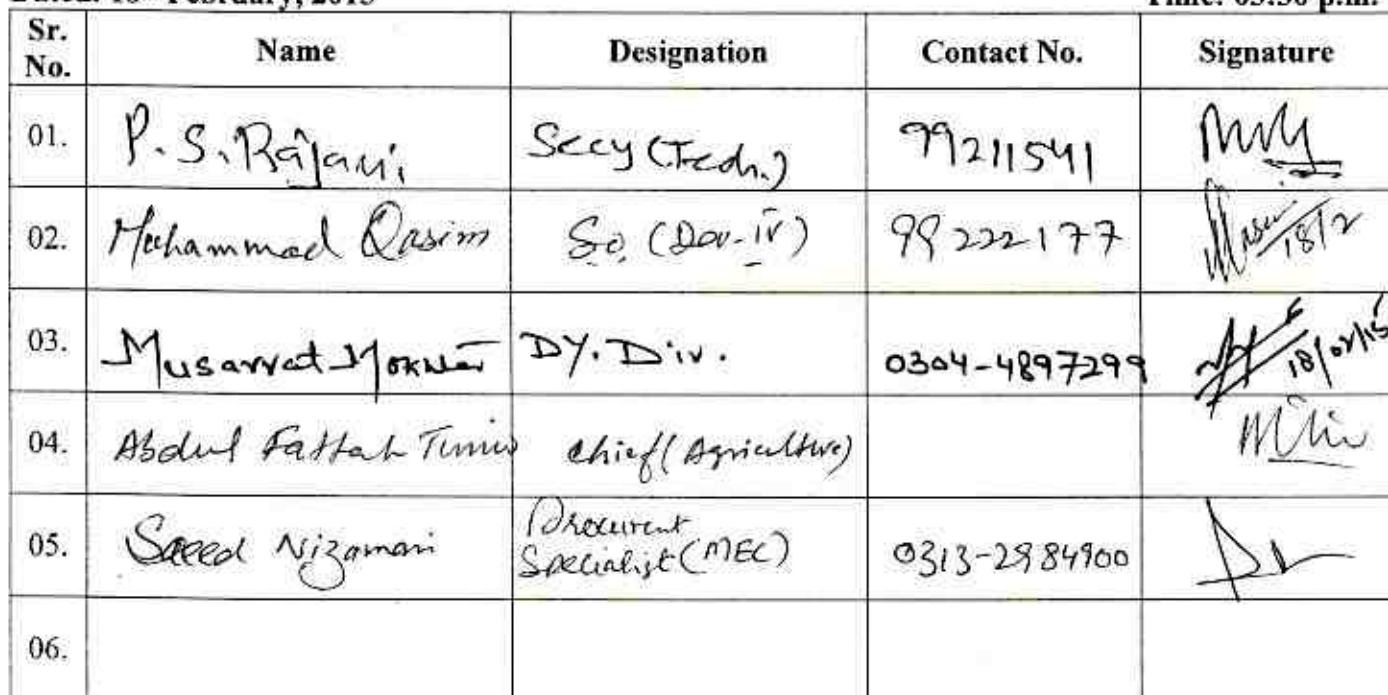 Dated: 18th February, 2015 Time: 03:30 p.m.
Sr. No. Name Designation Contact No. Signature
01. P. S. Rajani. Secy (Tech.) 99211541
02. Muhammad Qasim So. (Dev-IV) 99222177 18/2
03. Musarrat DY. Div. 0304-4897299 18/02/15
04. Abdul Fattah Chief (Agriculture)
05. Saeed Nizamani Procurent
Specialist (MEC) 0313-2984900
06.